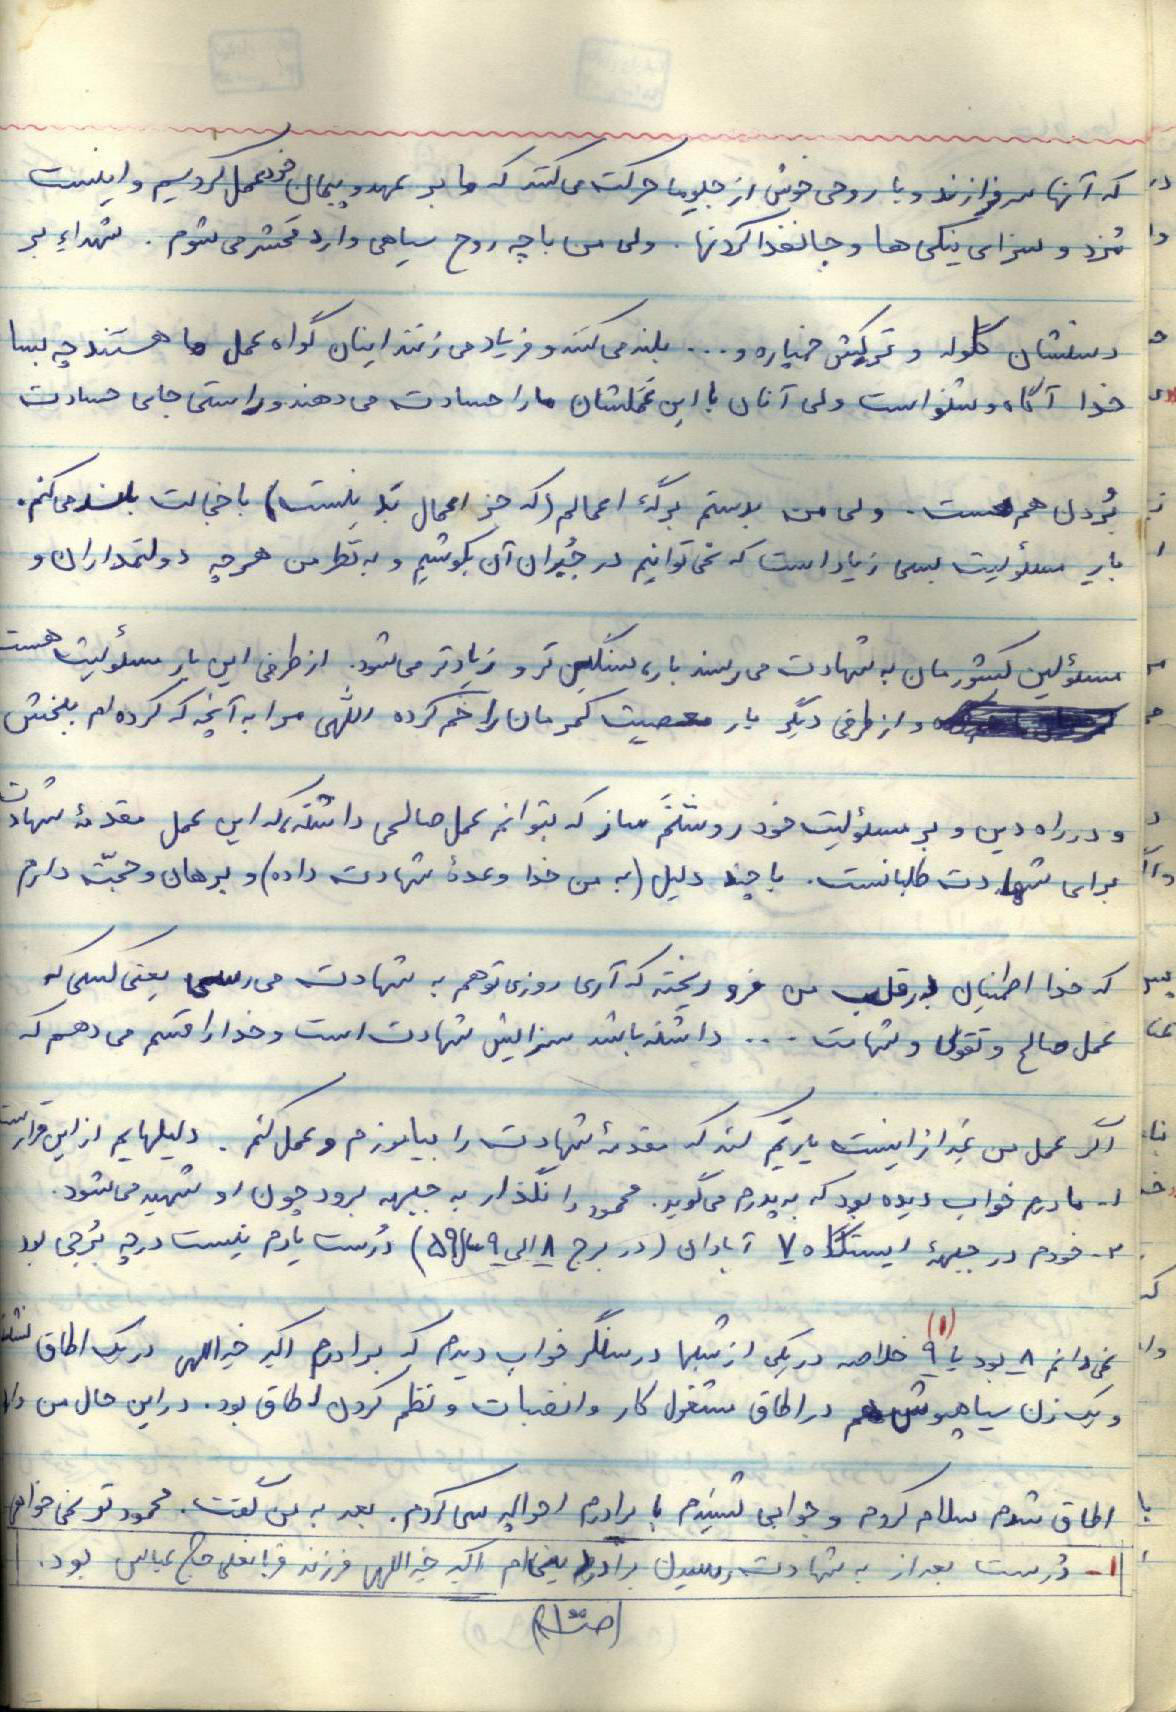 که آنها سرفرازند و با روحی خوش از جلو ما حرکت می کنند که ما بر عهد و پیمان خود عمل کردیم و اینست
مُزد و سزای نیکی ها و جانفدا کردنها. ولی من با چه روح سیاهی وارد مَحشر می شوم. شهداءِ بر
دستشان گلوله و ترکش خمپاره و... بلند می کنند و فریاد می زنند اینان گواه عمل ما هستند چه بسا
خدا آگاه و شنواست ولی آنان با این عَمَلشان ما را حسادت می دهند و راستی جای حسادت
بُردن هم هست. ولی من بدستم برگهٔ اعمالم (که جز اعمال بَد نیست) با خجالت بلند می کنم.
بارِ مسئولیت بسی زیاد است که نمی توانیم در جُبران آن بکوشیم و به نظر من هر چه دولتمداران و
مسئولین کشورمان به شهادت می رسند بار، سنگین تر و زیادتر می شود. از طرفی این بارِ مسئولیت هست
و از طرفی دیگر بار معصیت کمرمان را خَم کرده اللّهی مرا به آنچه که کرده ام ببخش
و در راه دین و بر مسئولیت خود روشنَم ساز که بتوانم عمل صالحی داشته، که این عمل مقدمهٔ شهادت
برای شهادت طلبانست. با چند دلیل (به من خدا وعدهٔ شهادت داده) و برهان و حجّت دارم
که خدا اطمینان بر قلب من فرو ریخته که آری روزی تو هم به شهادت می رسی یعنی کسی که
عمل صالح و تقوی و شهامت .... داشته باشد سزایش شهادت است و خدا را قسم می دهم که
اگر عمل من غیر از اینست یاریَم کند که مقدمهٔ شهادت را بیاموزم و عمل کنم. دلیلهایم از این قرار است
۱- مادرم خواب دیده بود که به پدرم می گوید. محمود را نگذار به جبهه برود چون او شهید می شود.
۲- خودم در جبههٔ ایستگاه ۷ آبادان (در برج ۸ الی ۹ سال ۵۹) دُرست یادم نیست در چه بُرجی بود
نمی دانم ۸ بود یا ۹ (۱) خلاصه در یکی از شبها در سنگر خواب دیدم که برادرم اکبر خیراللهی در یک اطاق نشسته
و یک زن سیاهپوش هم در اطاق مشغول کار و انضباط و نظم کردن اطاق بود. در این حال من وارد
اطاق شدم سلام کردم و جوابی شنیدم با برادرم احوالپرسی کردم. بعد به من گفت. محمود تو نمی خواهی
۱- دُرست بعد از به شهادت رسیدن برادرم اکبر خیراللهی فرزند قربانعلی حاج عباس بود.
(ص ۱)